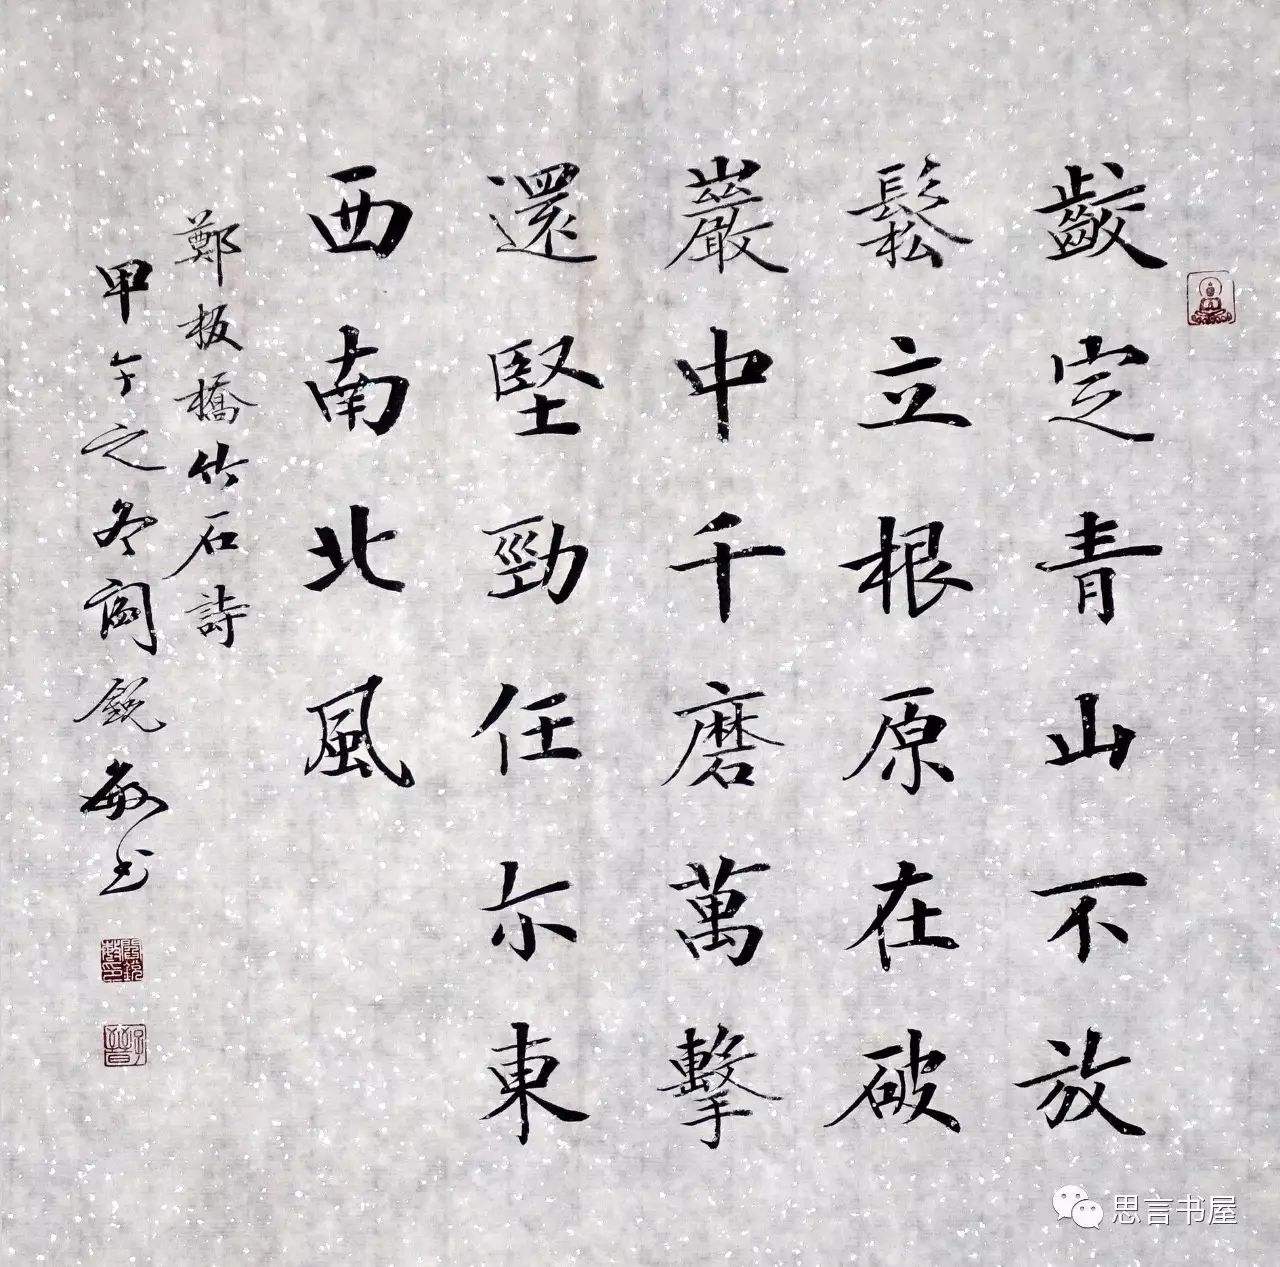 齩定青山不放
鬆立根原在破
巖中千磨萬擊
還堅勁任尔東
西南北風
鄭板橋竹石詩
甲午之冬閻銳敏书
思言书屋